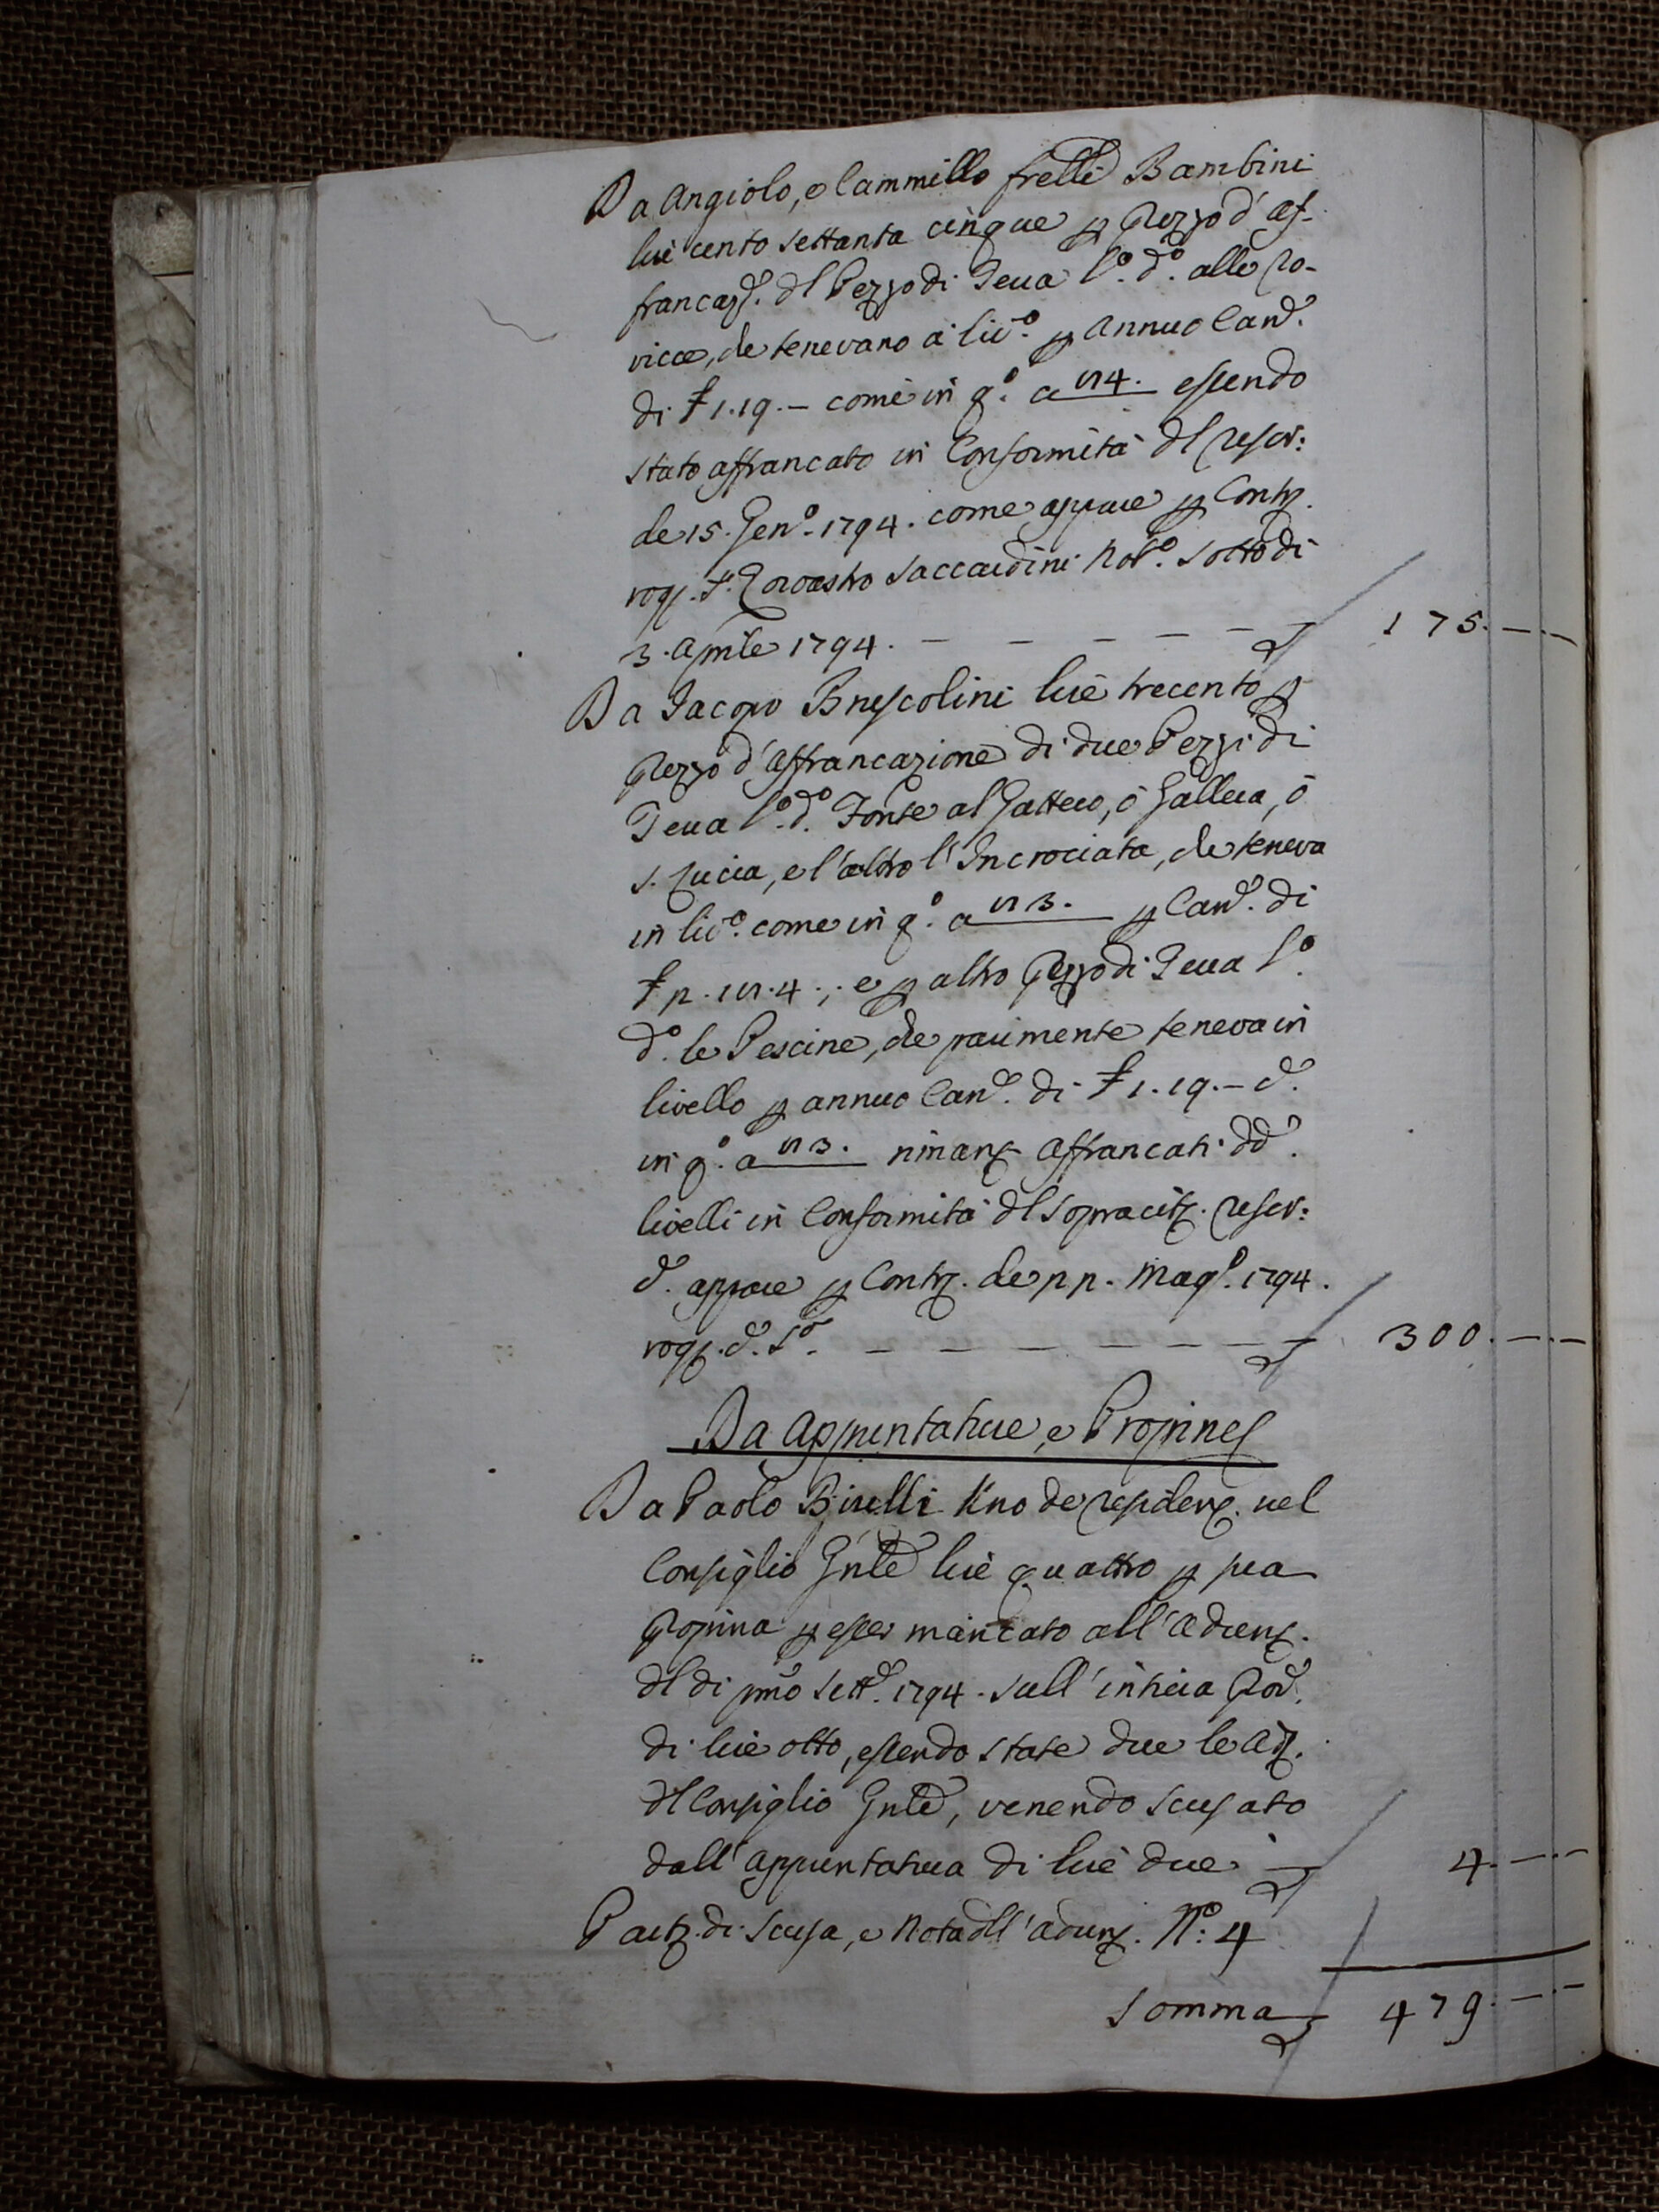 Da Angiolo, e Cammillo frelli Bambini
lire cento settanta cinque p prezzo d'af-
francaz. dl Pezzo di Terra l.º d.º alle Ro-
vicce, che tenevano a liv.º p annuo Can.e
di £ 1.19.- come in q.º a 54. essendo
stato affrancato in Conformità dl rescr:
de 15. Gen.º 1794. come appare p Contr.
rog. Sr. Zoroastro Saccardini Not.º sotto di
3. Aprile 1794. — — — — — £ 175. — . —
Da Jacopo Brescolini lire trecento p
prezzo d'affrancazione di due Pezzi di
Terra l.º d.º Fonte al Gattero, ò Gallera, ò
S. Lucia, e l'altro l'Incrociata, che teneva
in liv.º come in q.º a 53. p Can.e di
£ 2.15.4.; e p altro Pezzo di Terra l.º
d.º le Pescine, che parimente teneva in
livello p annuo Can.e di £ 1.19.- C.e
in q.º a 53. rimanx affrancati dd.i
livelli in Conformità dl sopracit. rescr:
C.e appare p Contr. de 22. Mag.º 1794.
rog. d. Sr. — — — — — — £ 300. — . —
Da Appuntature, e Propines
Da Paolo Birelli Uno de residenx. nel
Consiglio Gnle lire quattro p sua
propina p esser mancato all'Adunx.
dl di pmo Sett.e 1794. sull'intiera Prop.
di lire otto, essendo state due le Ad.
dl Consiglio Gnle, venendo scusato
dall'appuntatura di lire due — £ 4. — . —
Part. di Scusa, e Nota dll'adunx. N.º 4
Somma £ 479. — . —